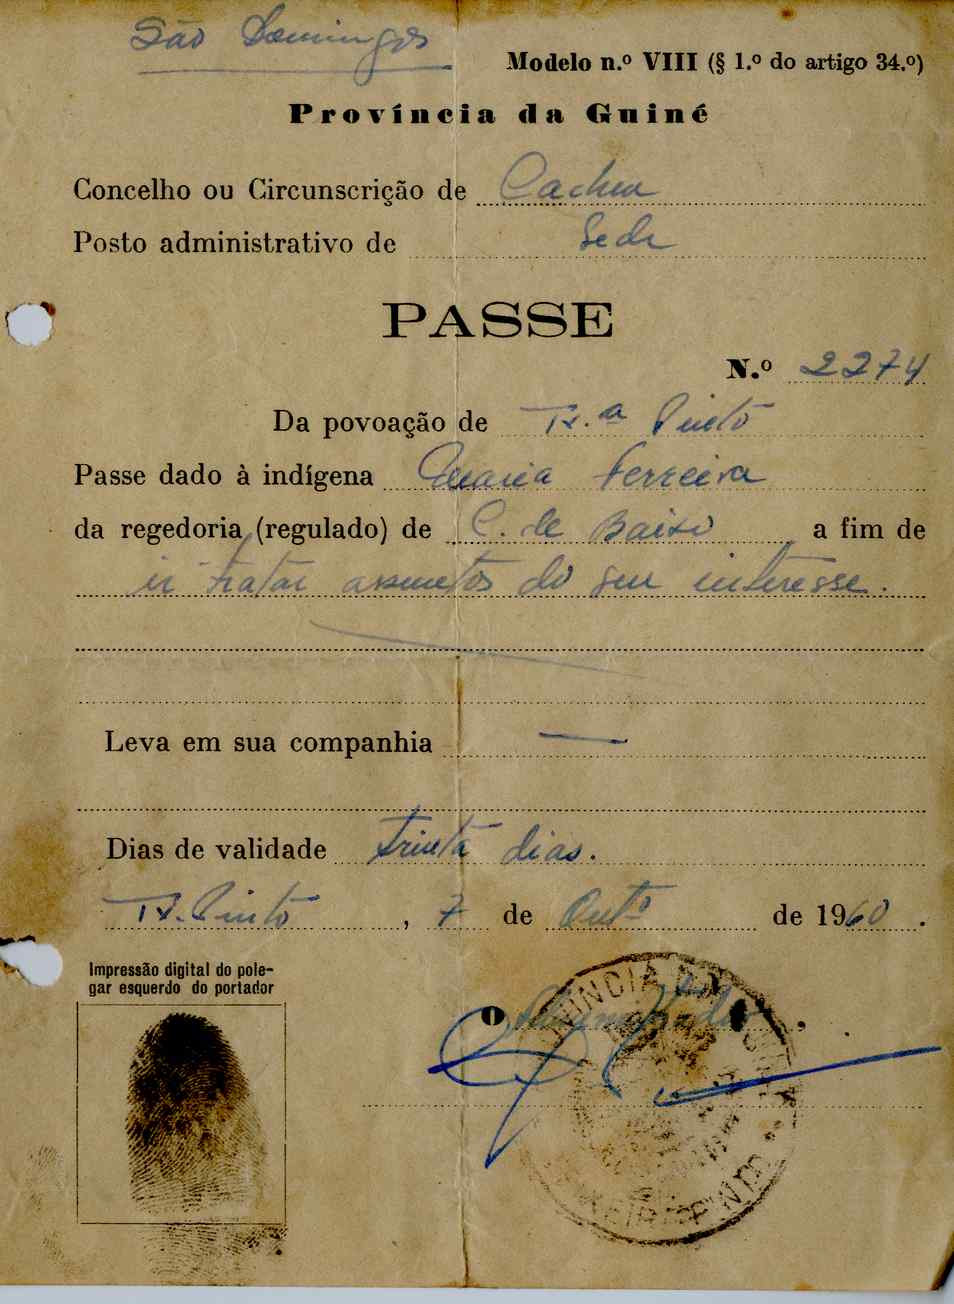 São Domingos
Modelo n.º VIII (§ 1.º do artigo 34.º)
Província da Guiné
Concelho ou Circunscrição de Cacheu
Posto administrativo de Sede
PASSE
N.º 2274
Da povoação de T.ª Pinto
Passe dado à indígena Maria Ferreira
da regedoria (regulado) de C. de Baixo a fim de
ir tratar assuntos do seu interesse.
Leva em sua companhia —
Dias de validade trinta dias.
T. Pinto, 7 de Outº de 1960.
Impressão digital do pole-
gar esquerdo do portador
O